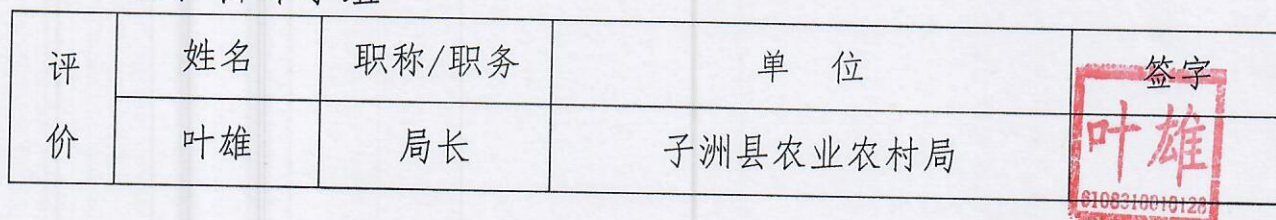 评价 姓名 职称/职务 单 位 签字
叶雄 局长 子洲县农业农村局 叶雄
6108310010128